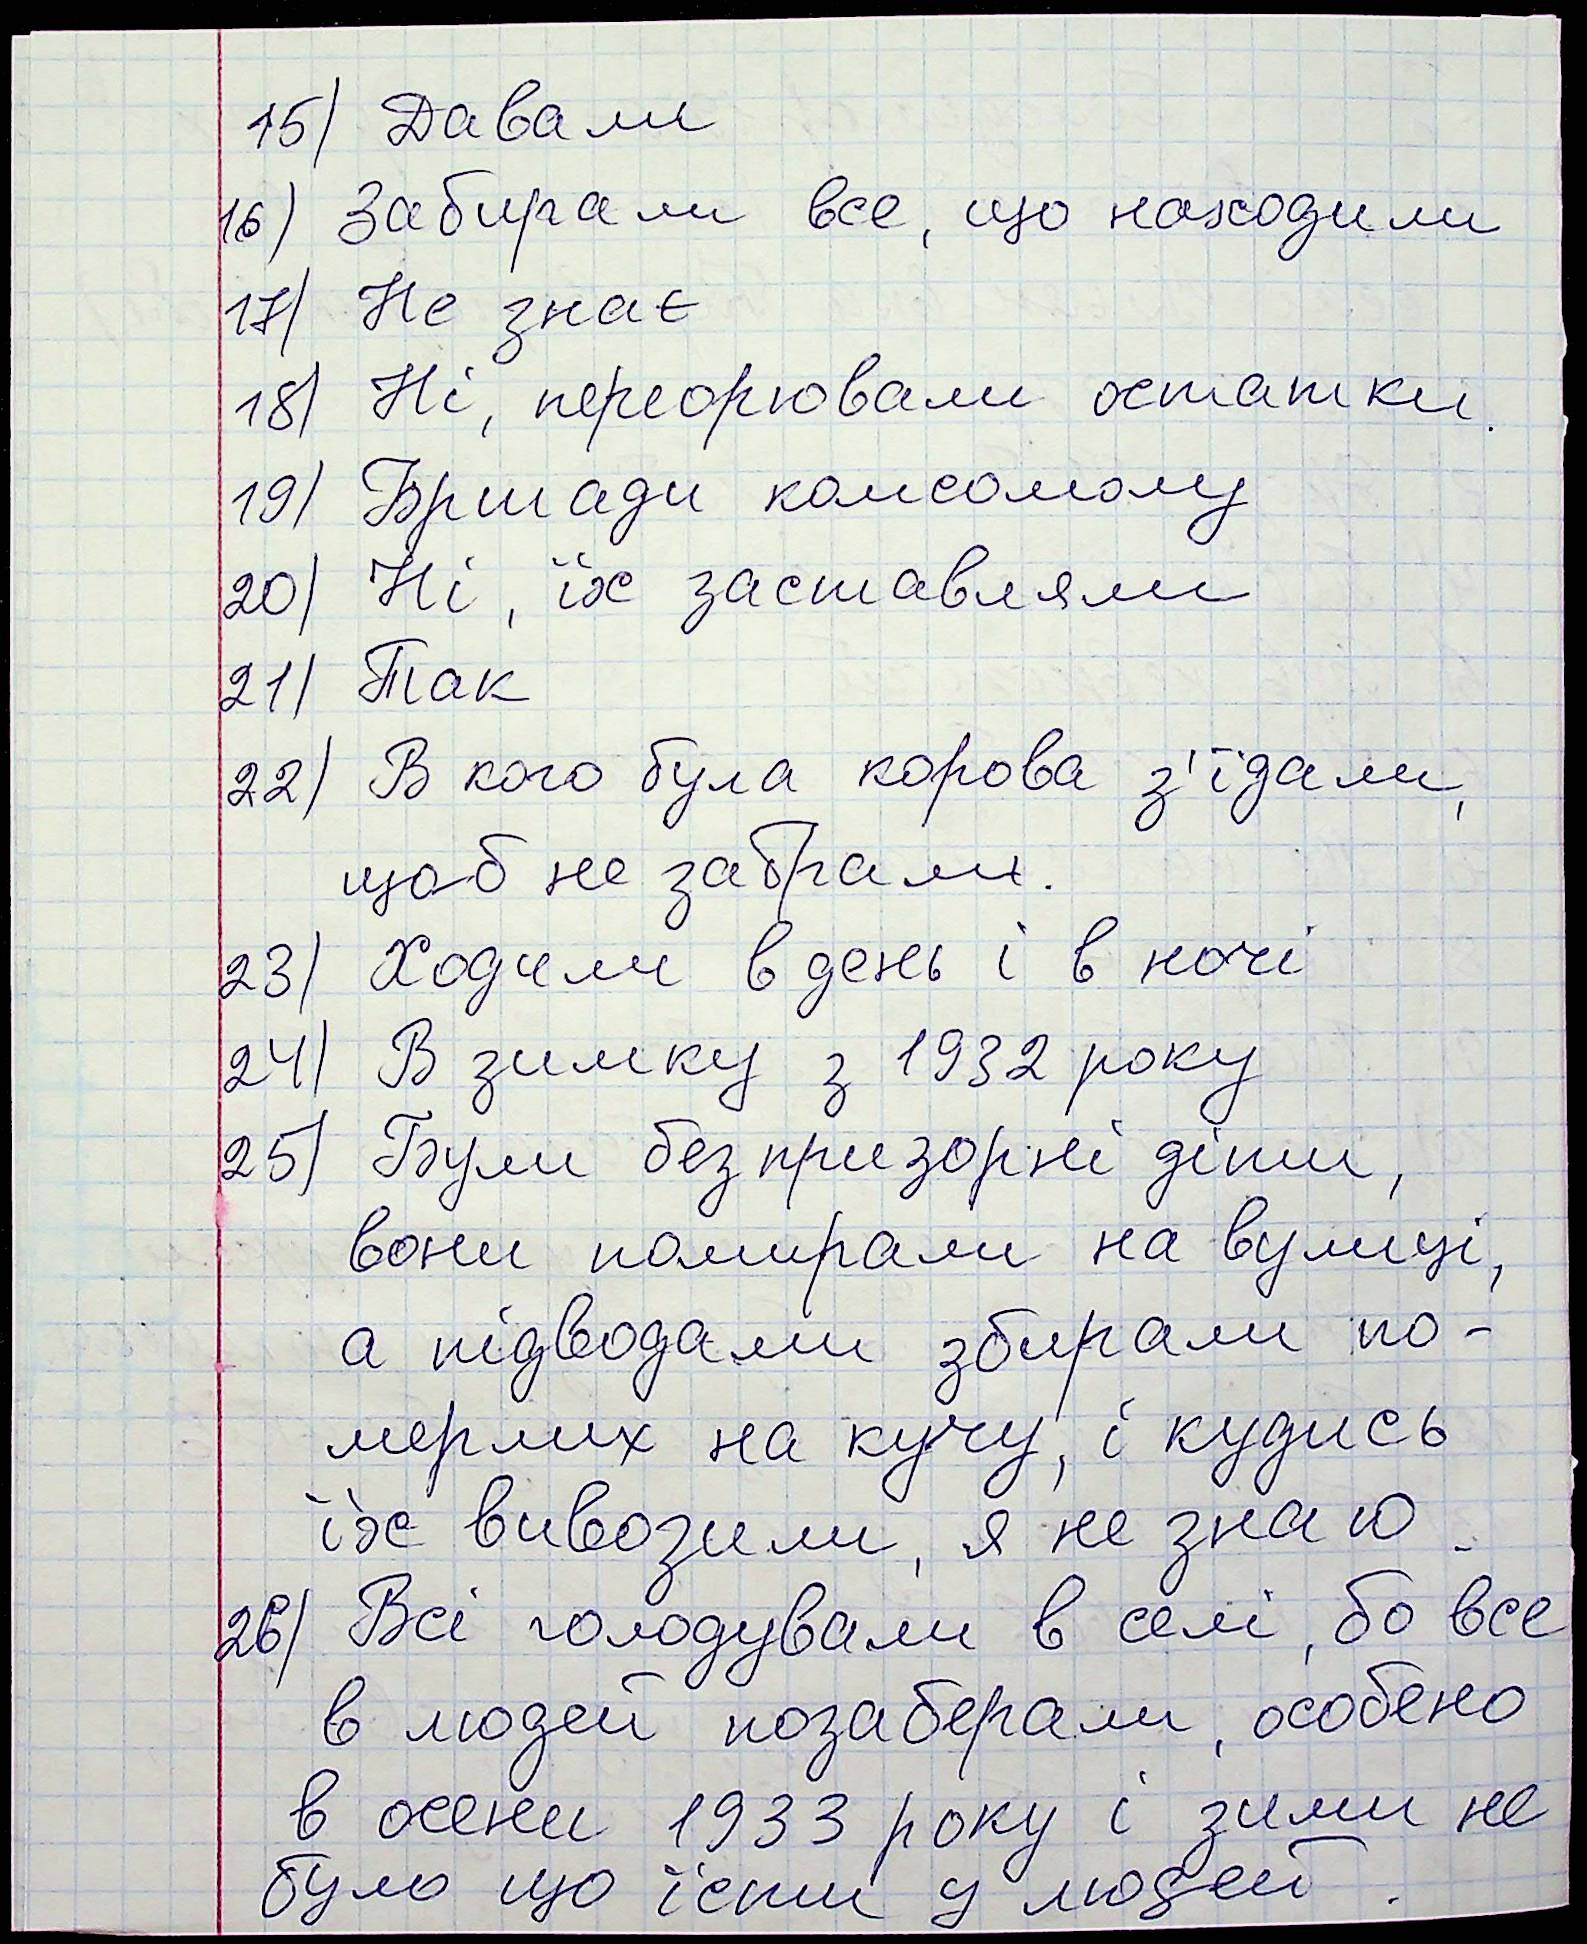 15) Давали
16) Забирали все, що находили
17) Не знає
18) Ні, переорювали остатки.
19) Бригади комсомолу
20) Ні, їх заставляли
21) Так
22) В кого була корова з'їдали,
щоб не забрали.
23) Ходили в день і в ночі
24) В зимку з 1932 року
25) Були безпризорні діти,
вони помирали на вулиці,
а підводами збирали по-
мерлих на кучу, і кудись
їх вивозили, я не знаю.
26) Всі голодували в селі, бо все
в людей позаберали, особено
в осени 1933 року і зими не
було що їсти у людей.